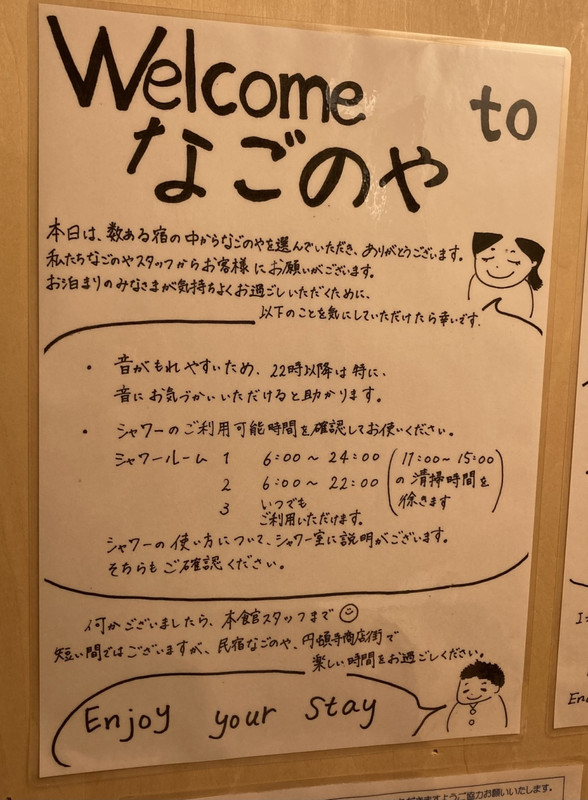 Welcome to
なごのや
本日は、数ある宿の中からなごのやを選んでいただき、ありがとうございます。
私たちなごのやスタッフからお客様にお願いがございます。
お泊まりのみなさまが気持ちよくお過ごしいただくために、
以下のことを気にしていただけたら幸いです。
・ 音がもれやすいため、22時以降は特に、
音にお気づかいいただけると助かります。
・ シャワーのご利用可能時間を確認してお使いください。
シャワールーム 1 6:00～24:00 (11:00～15:00
2 6:00～22:00 の清掃時間を
3 いつでも 除きます)
ご利用いただけます。
シャワーの使い方について、シャワー室に説明がございます。
そちらもご確認ください。
何かございましたら、本館スタッフまで☺
短い間ではございますが、民宿なごのや、円頓寺商店街で
楽しい時間をお過ごしください。
Enjoy your stay
ますようご協力お願いいたします。